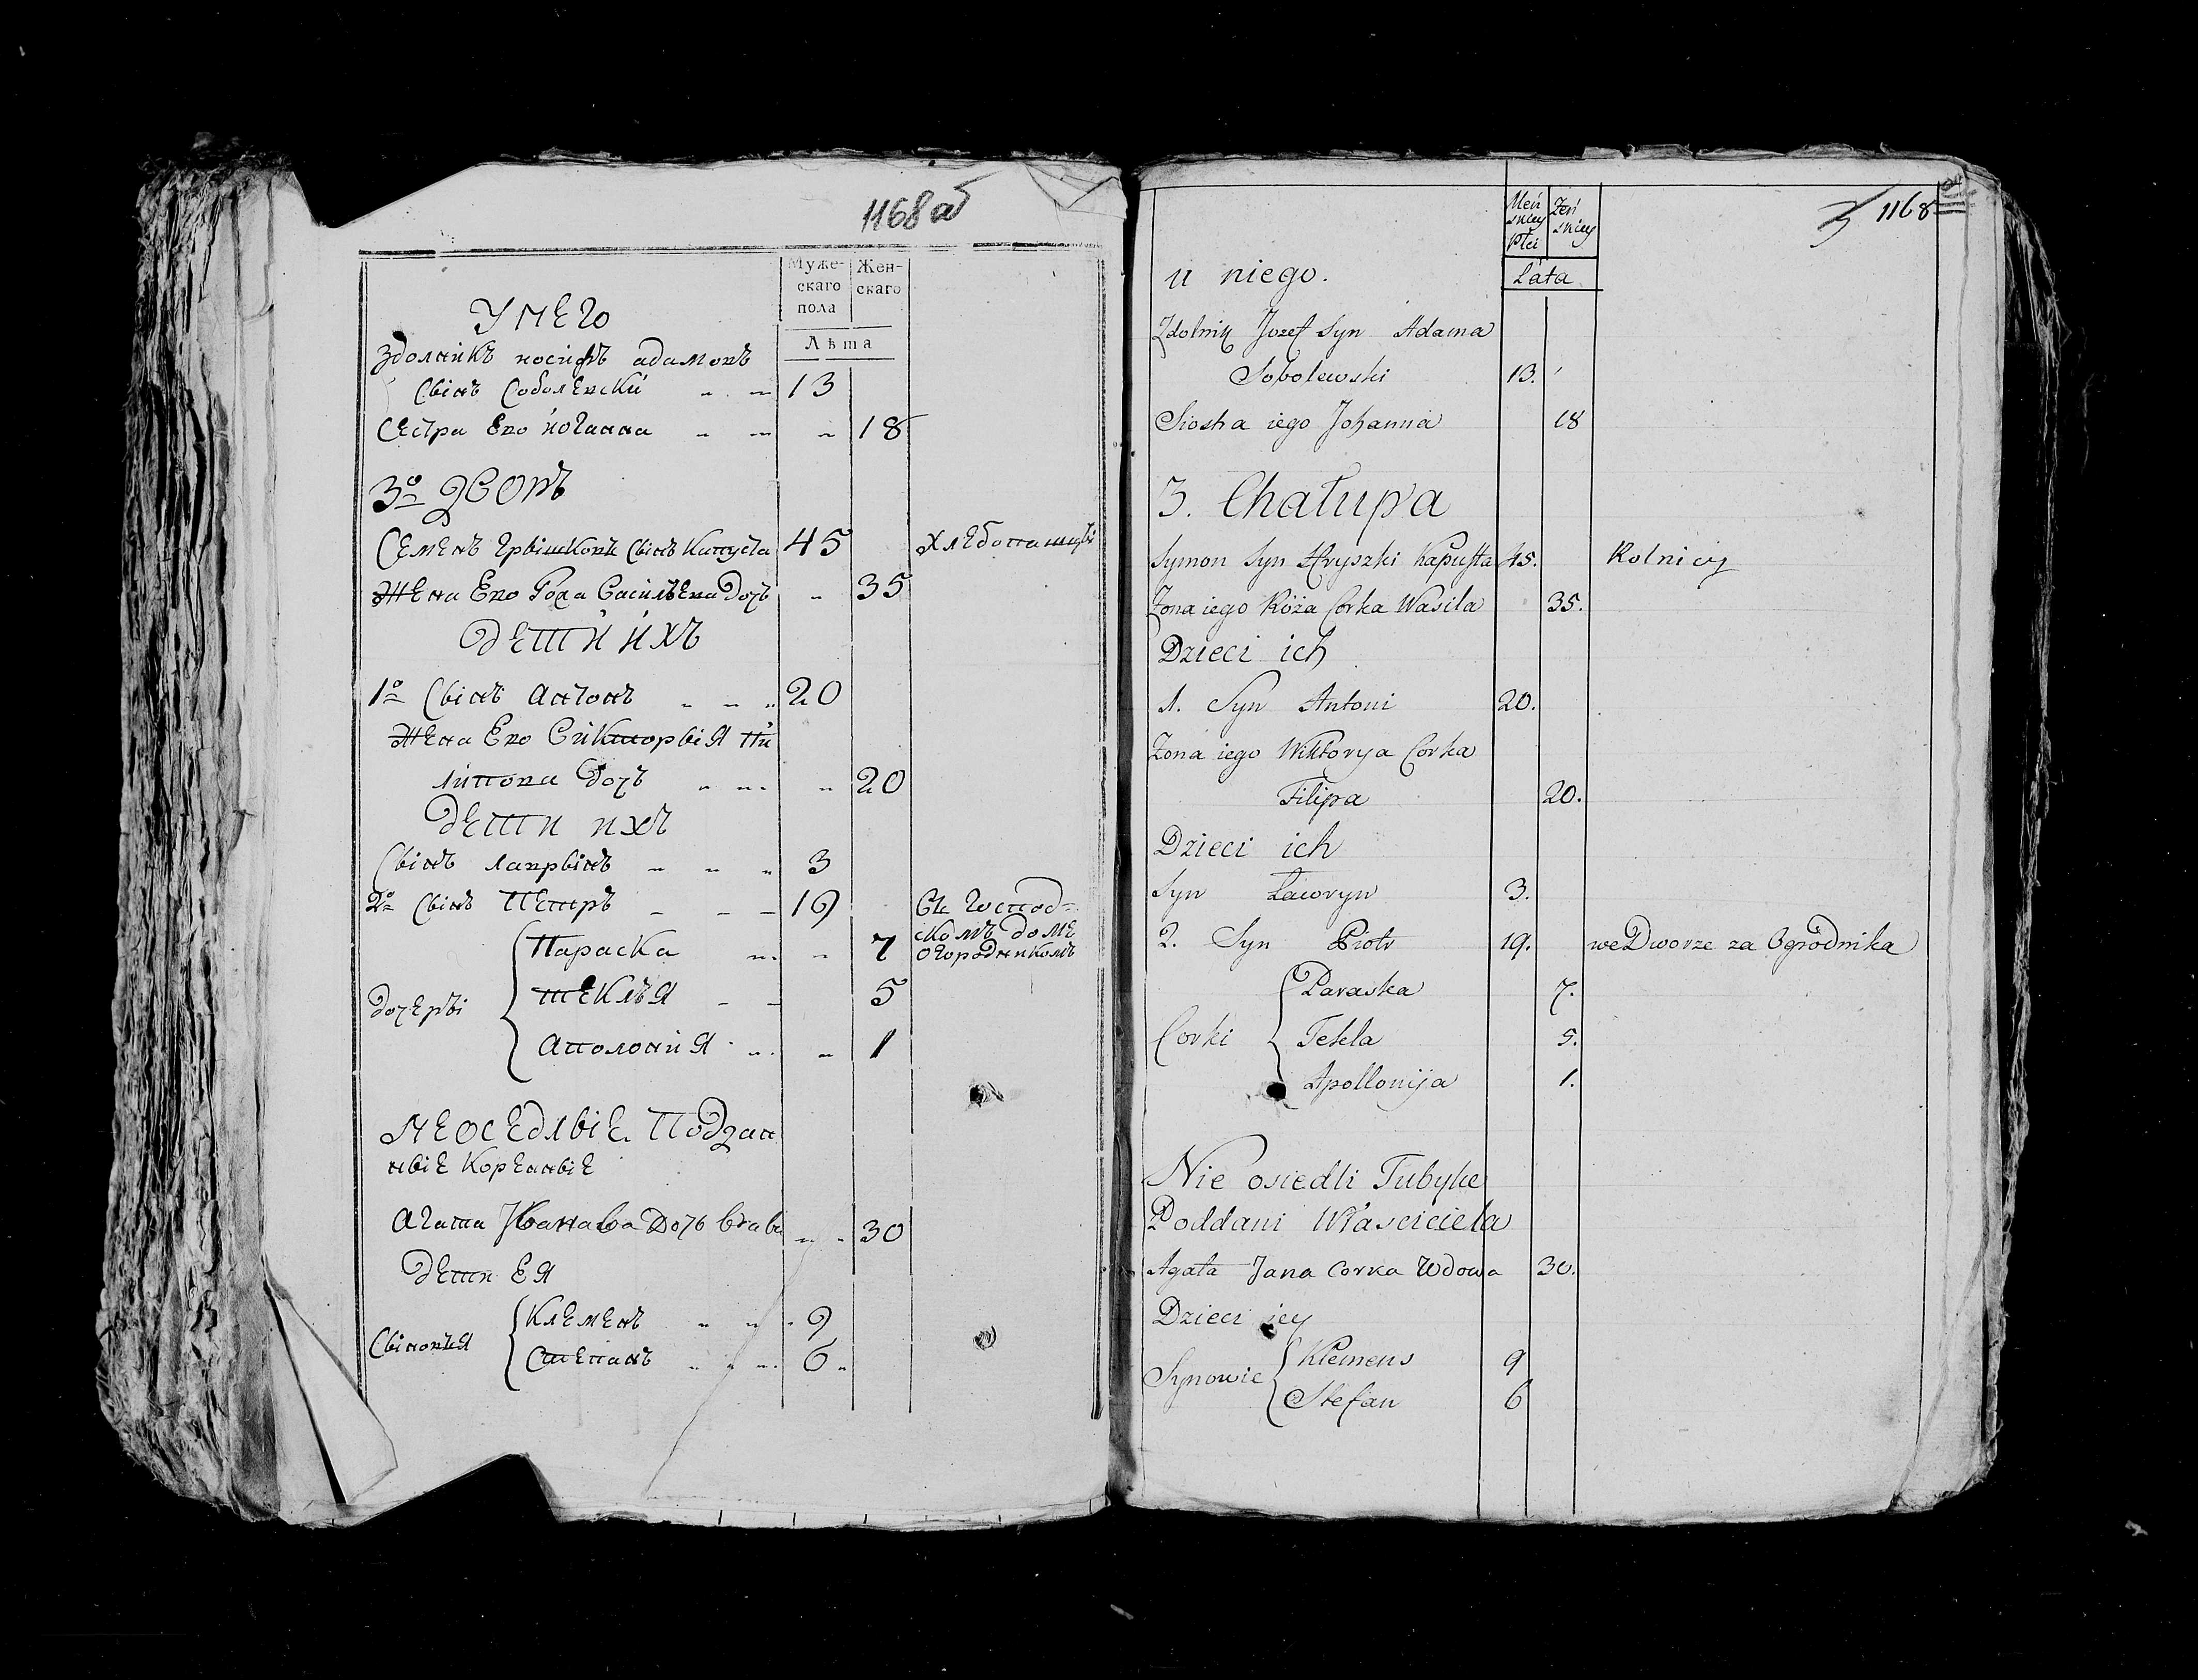 1168 об
Муже-
скаго
пола
Жен-
скаго
Лѣта
У Него
здолникъ иосифъ адамовъ
Свінъ Соболевски 13
Сестра Ево иоганна 18
3о двовъ
Семенъ Грвішковъ Свінъ Капуста 45 Хлебопашцві
Жена Ево Рожа Василъева Дочъ 35
Дети ихъ
1о Свінъ Антонъ 20
Жена Ево Викторвія Фи
липова Дочъ 20
Дети ихъ
Свінъ Лаврвінъ 3
2о Свінъ Петръ 19 Въ Господ=
скомъ доме
огородникомъ
Параска 7
Теклъя 5
Дочерві
Аполония 1
Неоседлвіе Поддан
нвіе Коренвіе
Агата Иванава Дочь Вдава 30
Дети Ея
Клеменъ 9
Свіновъя
Степанъ 6
1168
Męskiey Płci
Żeńskiey
Lata
u niego.
Zdolnik Jozef Syn Adama
Sobolewski 13.
Siostra iego Johanna 18
3. Chałupa
Symon Syn Hryszki Kapusta 45. Rolnicy
Zona iego Róża Corka Wasila 35.
Dzieci ich
1. Syn Antoni 20.
Zona iego Wiktorya Corka
Filipa 20.
Dzieci ich
Syn Ławryn 3.
2. Syn Piotr 19. we Dworze za Ogrodnika
Paraska 7.
Corki
Tekla 5.
Apollonija 1.
Nie osiedli Tubylce
Poddani Własciciela
Agata Jana Corka Wdowa 30.
Dzieci iey
Klemens 9
Synowie
Stefan 6